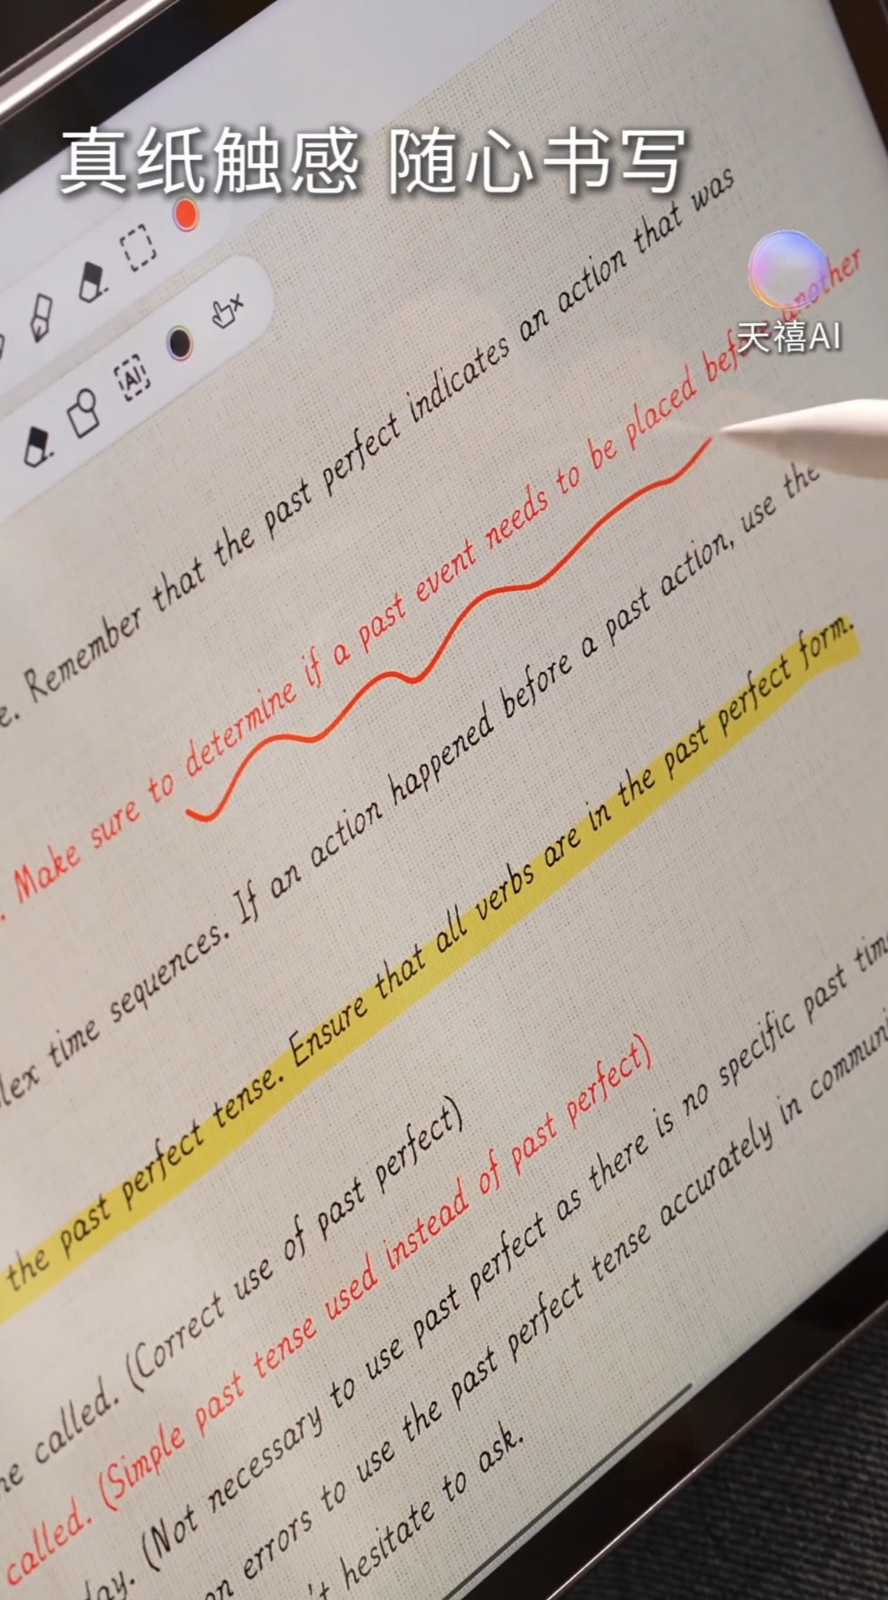 真纸触感 随心书写
天禧AI
AI
e. Remember that the past perfect indicates an action that was
. Make sure to determine if a past event needs to be placed before another
lex time sequences. If an action happened before a past action, use the
the past perfect tense. Ensure that all verbs are in the past perfect form.
he called. (Correct use of past perfect)
called. (Simple past tense used instead of past perfect)
day. (Not necessary to use past perfect as there is no specific past tim
on errors to use the past perfect tense accurately in communi
't hesitate to ask.